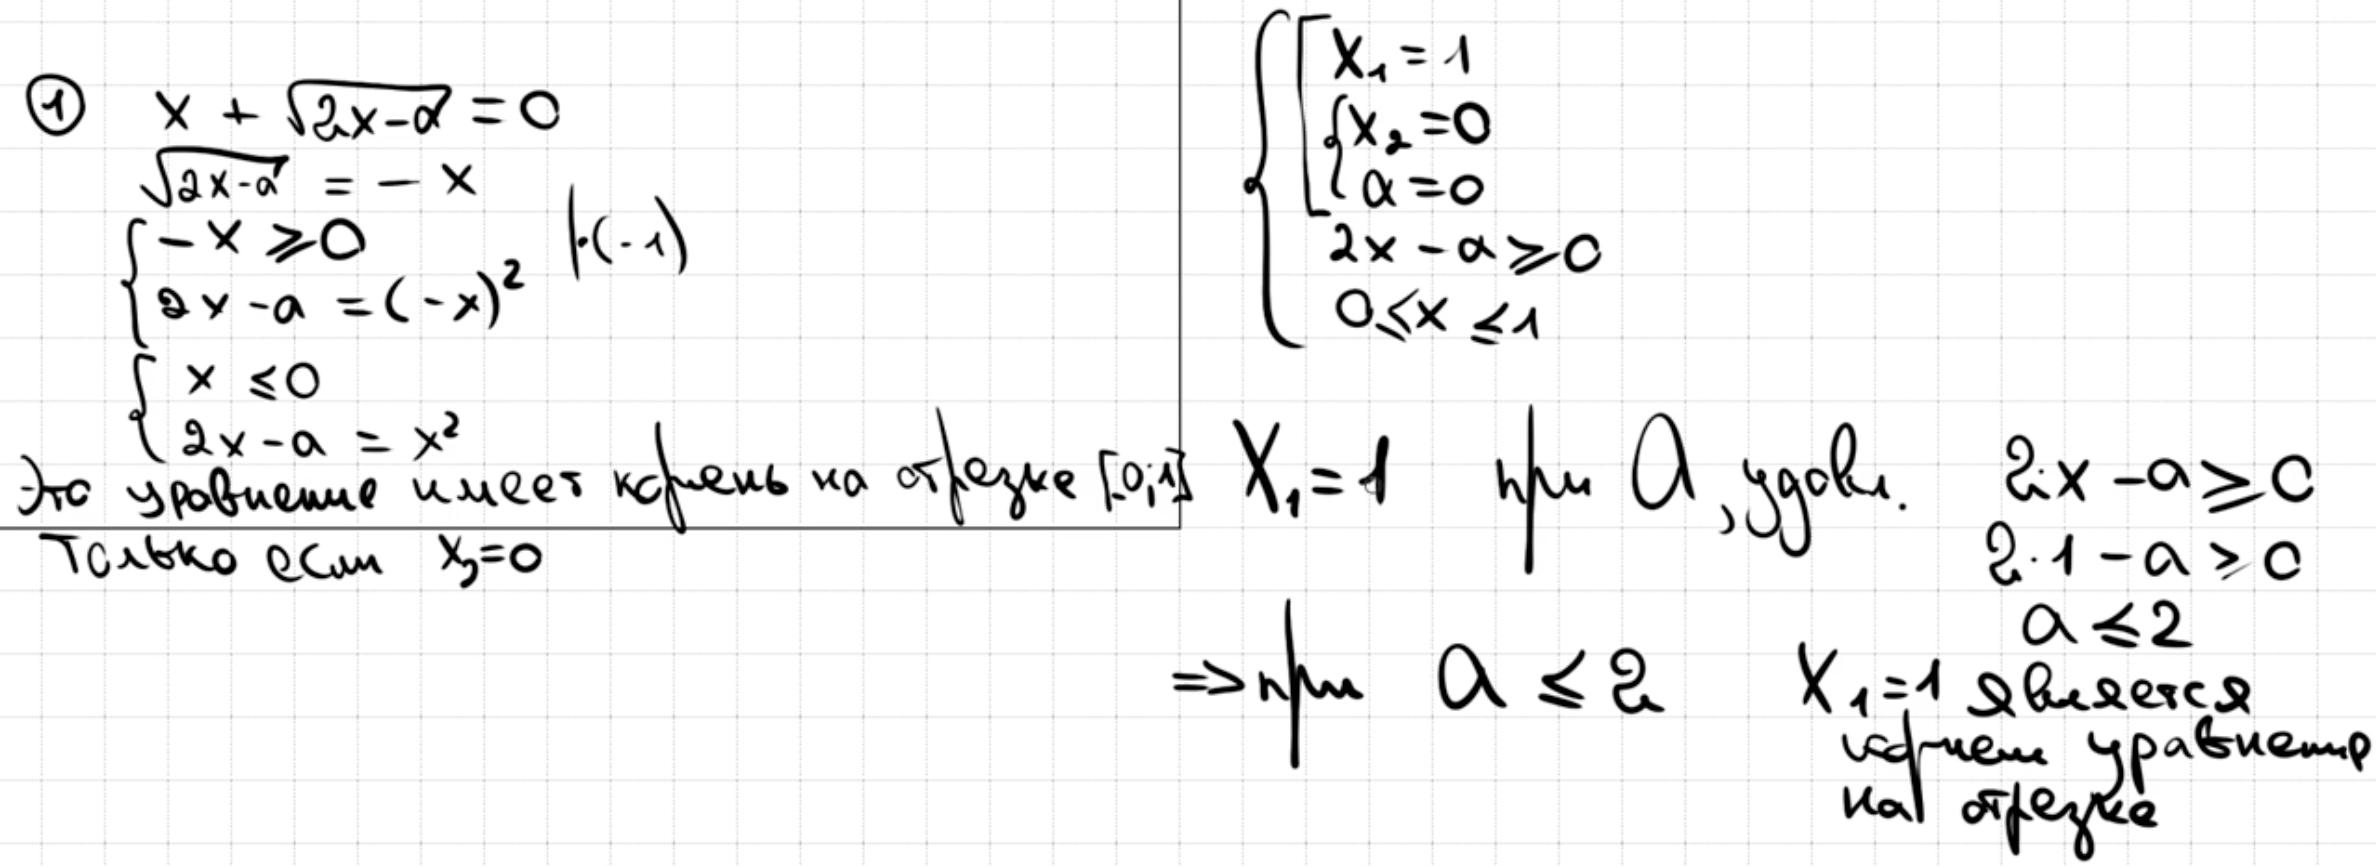 ① x + √(2x-a) = 0
√(2x-a) = - x
{ - x ⩾ 0 |·(-1)
2x - a = (-x)²
{ x ≤ 0
2x - a = x²
Это уравнение имеет корень на отрезке [0;1]
только если x₂=0
{ [ x₁ = 1
{ x₂ = 0
a = 0
2x - a ⩾ 0
0 ≤ x ≤ 1
x₁ = 1 при a, удовл. 2x - a ⩾ 0
2·1 - a ⩾ 0
a ≤ 2
=> при a ≤ 2 x₁ = 1 является
корнем уравнения
на отрезке